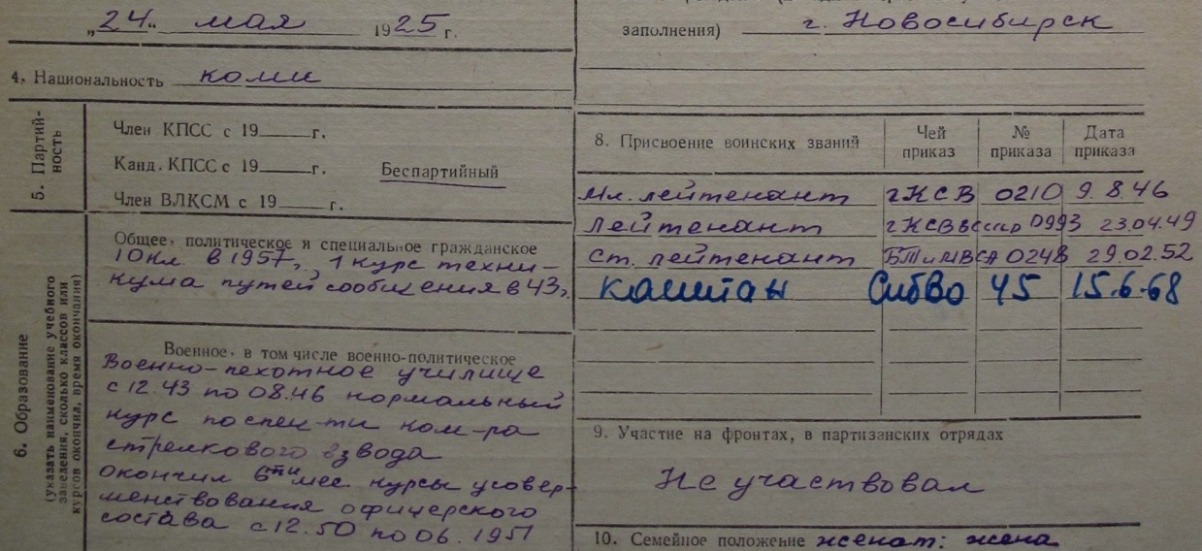 „24" мая 1925 г.
4. Национальность коми
5. Партий-
ность
Член КПСС с 19 г.
Канд. КПСС с 19 г. Беспартийный
Член ВЛКСМ с 19 г.
6. Образование
(указать наименование учебного
заведения, сколько классов или
курсов окончил, время окончания)
Общее, политическое и специальное гражданское
10 кл. в 1957г, 1 курс техни-
кума путей сообщения в 43г.
Военное, в том числе военно-политическое
Военно-пехотное училище
с 12.43 по 08.46 нормальный
курс по спец-ти ком-ра
стрелкового взвода
окончил 6ти мес курсы усовер-
менствования офицерского
состава с 12.50 по 06.1951
заполнения) г. Новосибирск
8. Присвоение воинских званий Чей приказ № приказа Дата приказа
Мл. лейтенант гКСВ 0210 9.8.46
Лейтенант гКСВ 0993 23.04.49
Ст. лейтенант БТиМВСА 0248 29.02.52
капитан СибВо 45 15.6.68
9. Участие на фронтах, в партизанских отрядах
Не участвовал
10. Семейное положение женат: жена